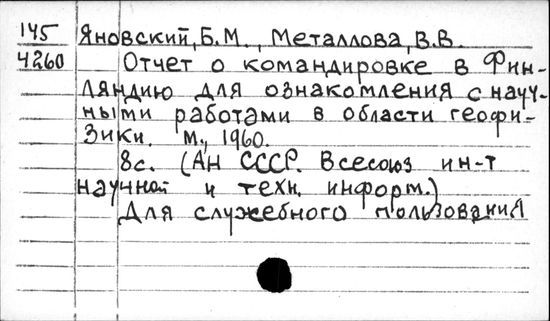 145 Яновский, Б.М., Металлова, В.В.
4260 Отчет о командировке в Фин-
ляндию для ознакомления с науч-
ными работами в области геофи-
зики. М., 1960.
8с. (АН СССР. Всесоюз ин-т
научной и техн. информ.)
Для служебного пользования